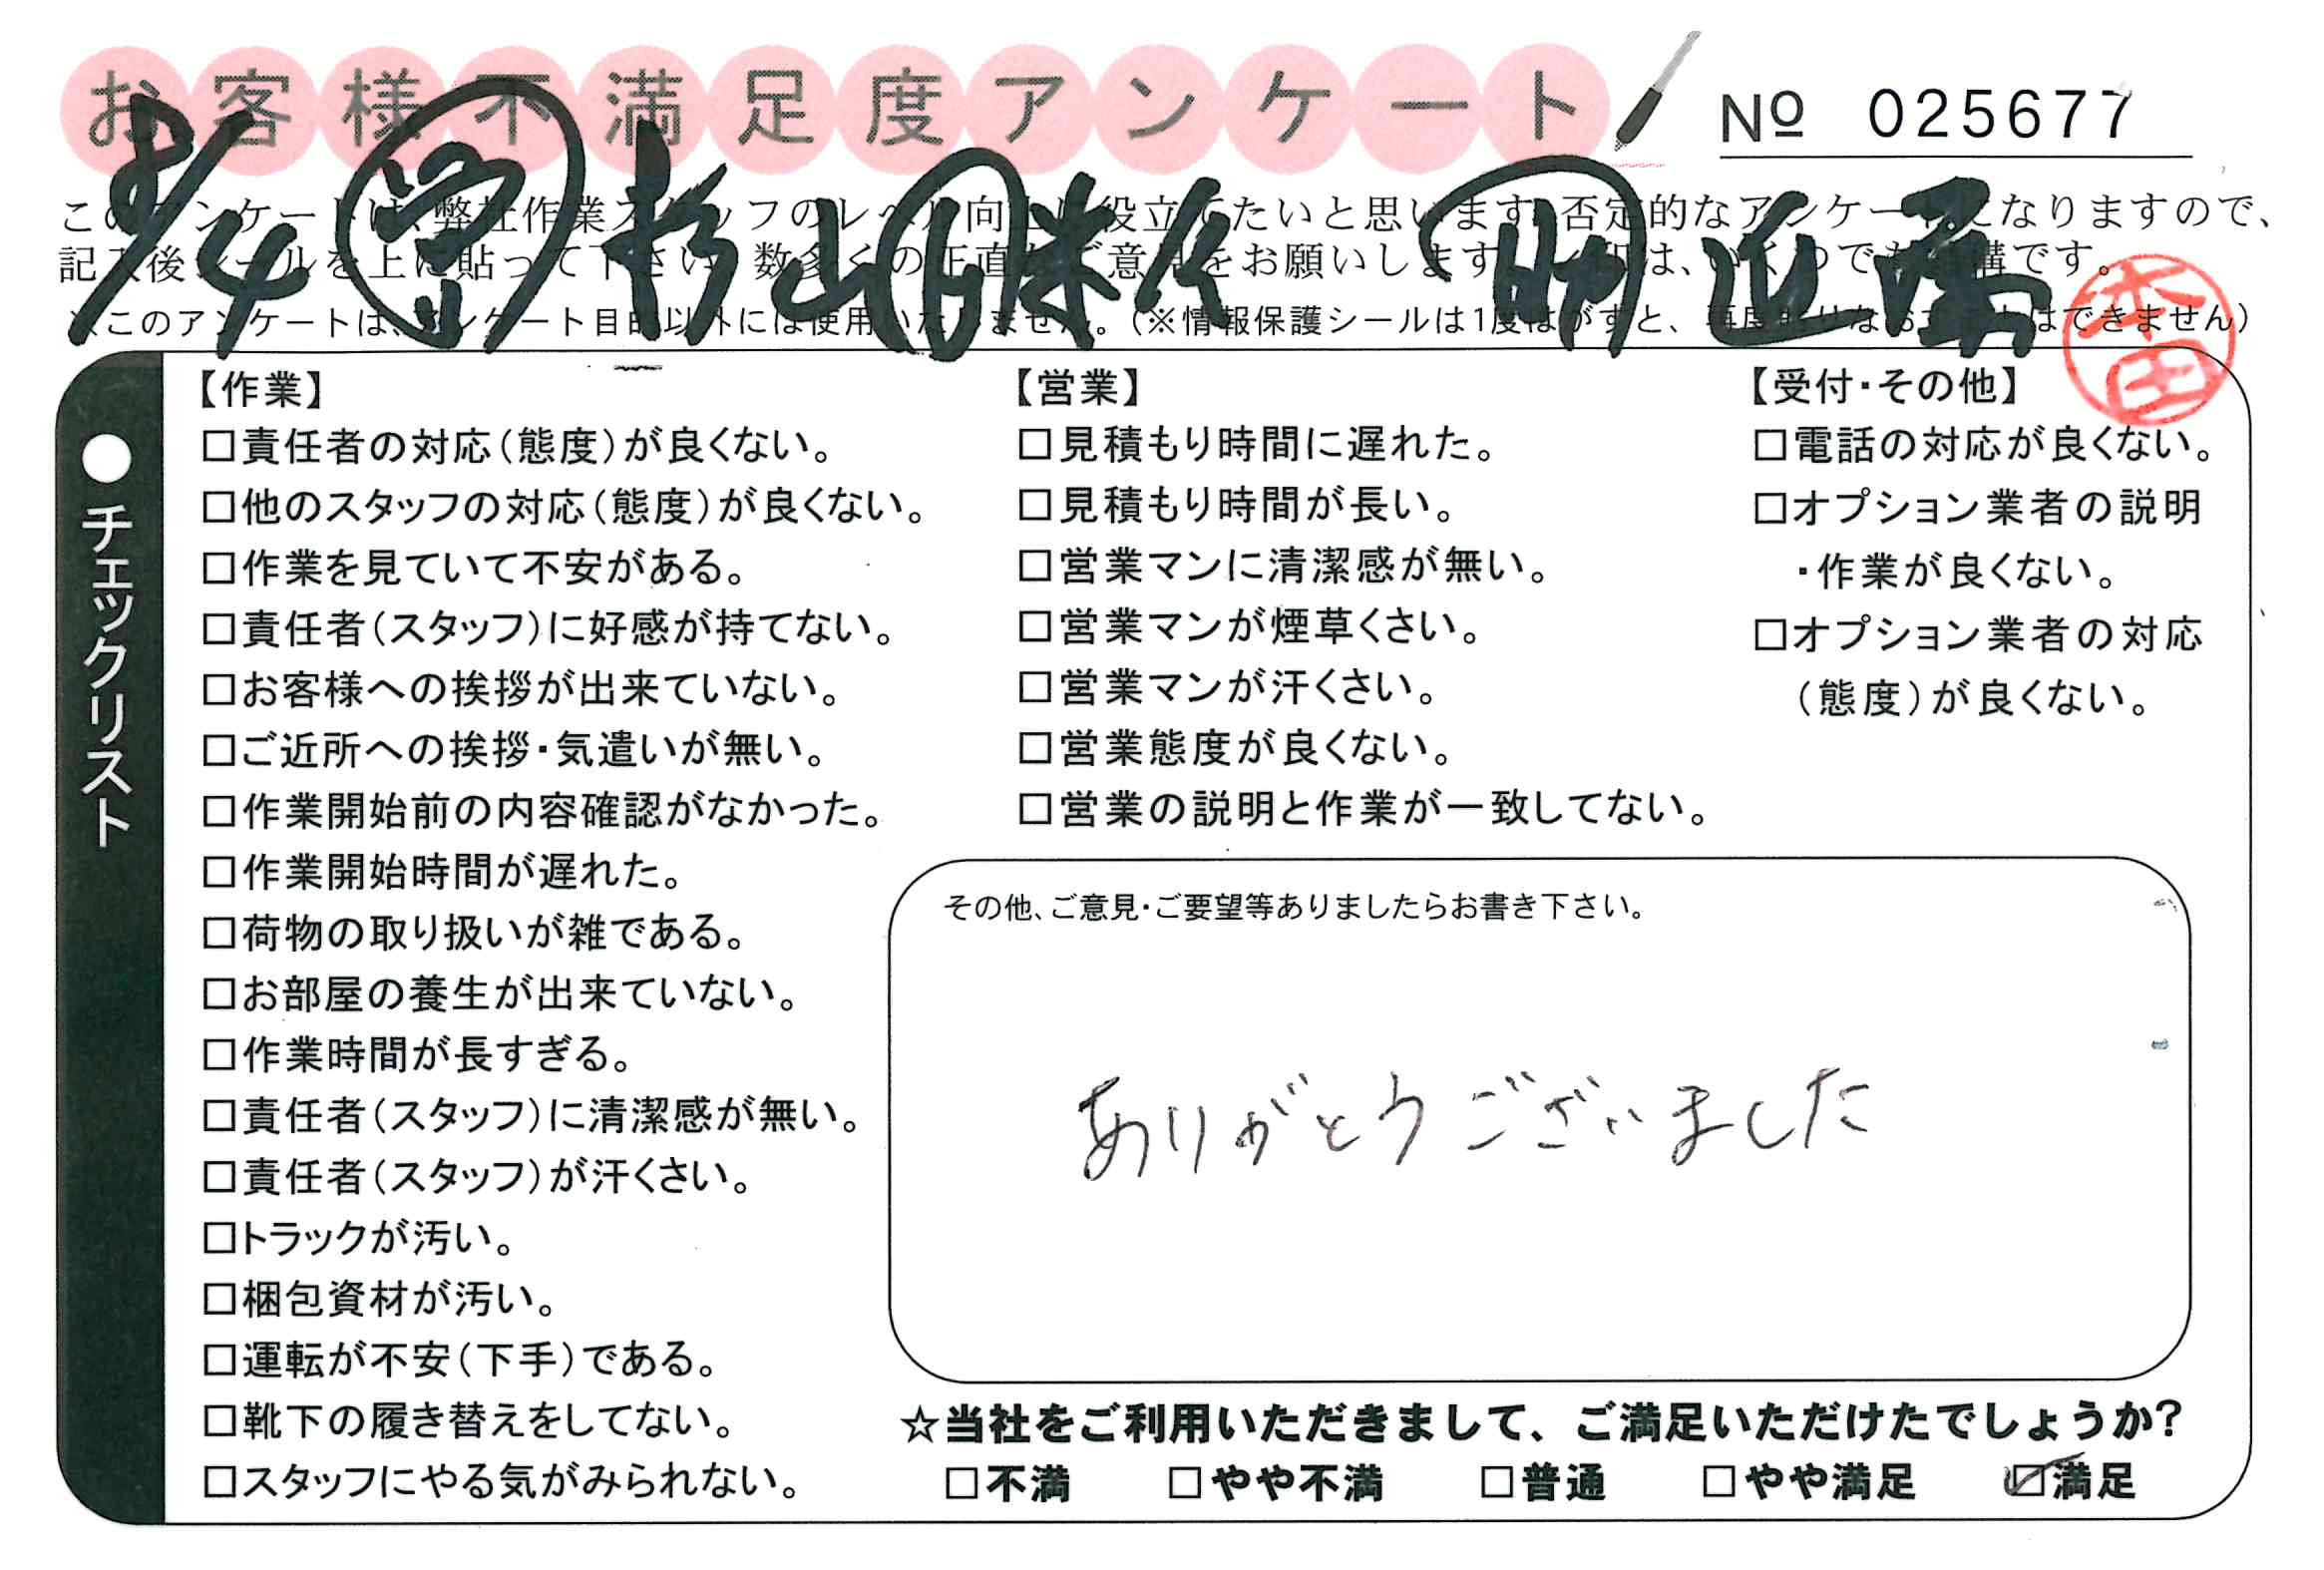 お客様不満足度アンケート
№ 025677
8/4 杉山 助 近藤
このアンケートは、弊社作業スタッフのレベル向上に役立てたいと思います。否定的なアンケートになりますので、
記入後シールを上に貼って下さい。数多くの正直なご意見をお願いします。
※このアンケートは、アンケート目的以外には使用いたしません。(※情報保護シールは1度はがすと、再度貼りなおすことはできません)
本田
●チェックリスト
【作業】
□責任者の対応(態度)が良くない。
□他のスタッフの対応(態度)が良くない。
□作業を見ていて不安がある。
□責任者(スタッフ)に好感が持てない。
□お客様への挨拶が出来ていない。
□ご近所への挨拶・気遣いが無い。
□作業開始前の内容確認がなかった。
□作業開始時間が遅れた。
□荷物の取り扱いが雑である。
□お部屋の養生が出来ていない。
□作業時間が長すぎる。
□責任者(スタッフ)に清潔感が無い。
□責任者(スタッフ)が汗くさい。
□トラックが汚い。
□梱包資材が汚い。
□運転が不安(下手)である。
□靴下の履き替えをしてない。
□スタッフにやる気がみられない。
【営業】
□見積もり時間に遅れた。
□見積もり時間が長い。
□営業マンに清潔感が無い。
□営業マンが煙草くさい。
□営業マンが汗くさい。
□営業態度が良くない。
□営業の説明と作業が一致してない。
【受付・その他】
□電話の対応が良くない。
□オプション業者の説明
・作業が良くない。
□オプション業者の対応
(態度)が良くない。
その他、ご意見・ご要望等ありましたらお書き下さい。
ありがとうございました
☆当社をご利用いただきまして、ご満足いただけたでしょうか?
□不満 □やや不満 □普通 □やや満足 ☑満足